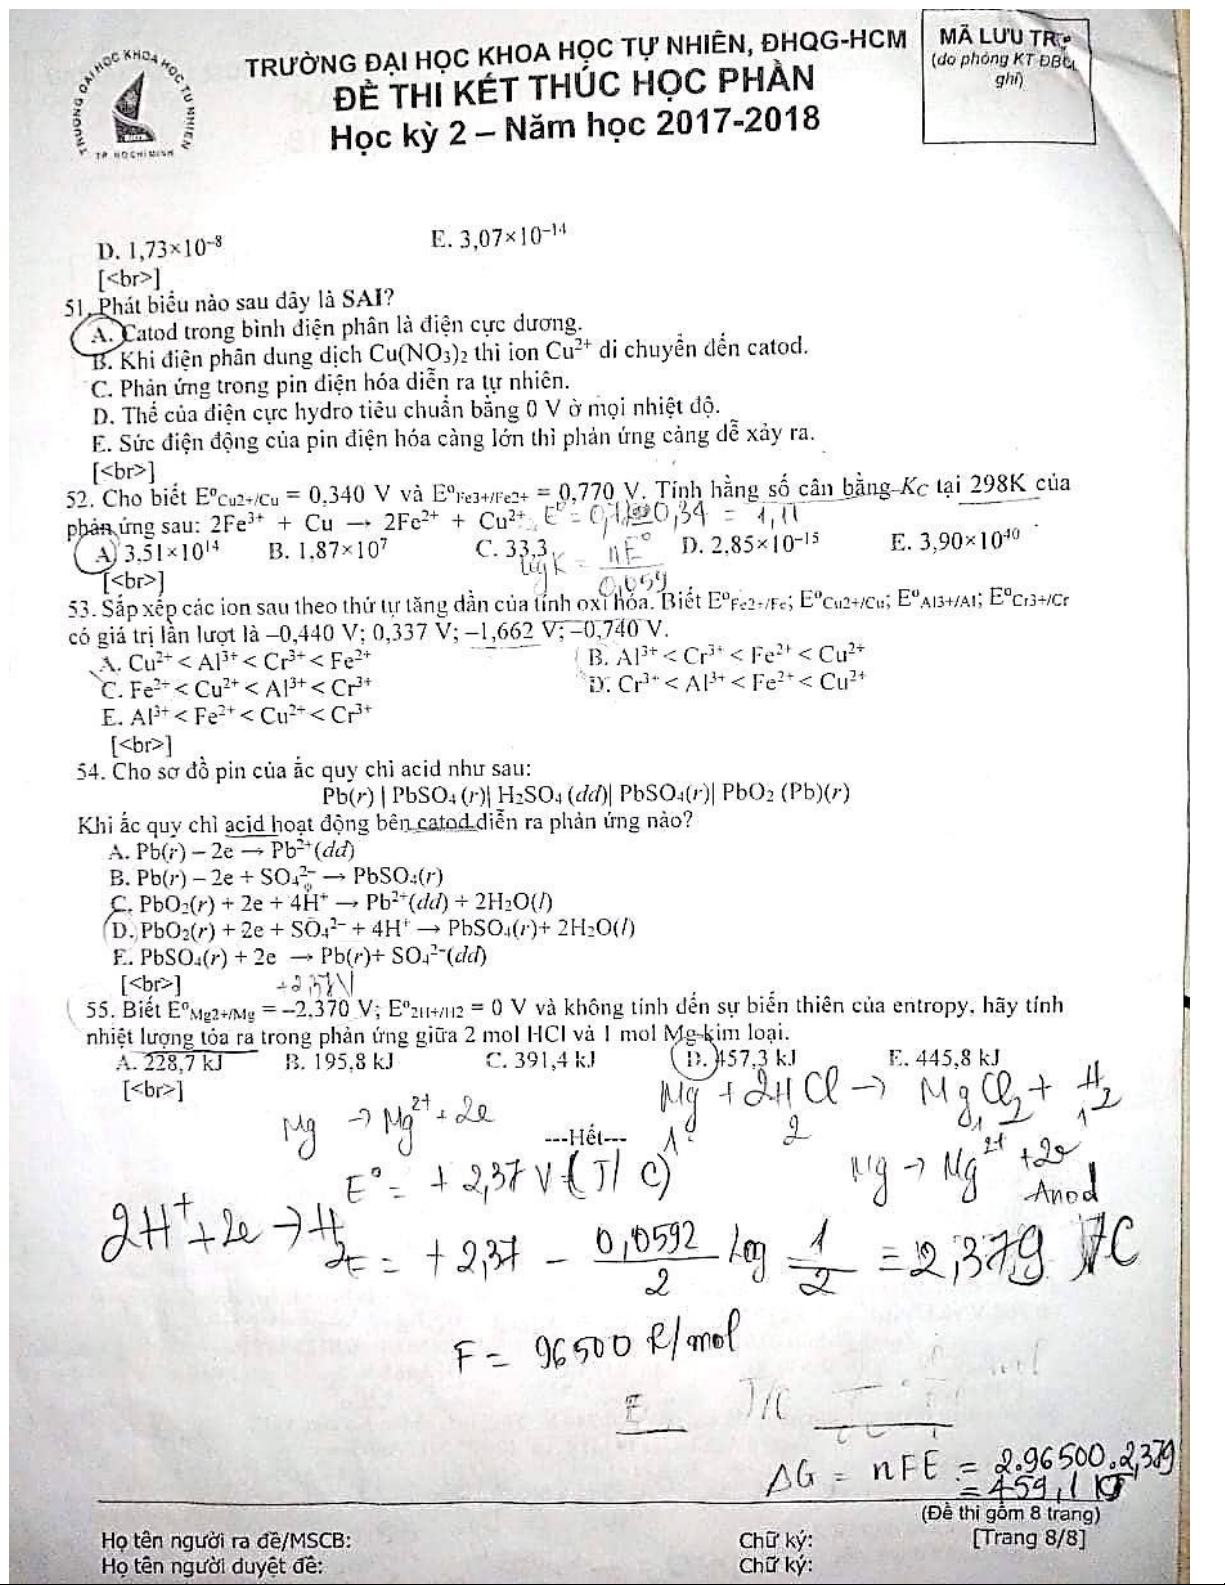 TRƯỜNG ĐẠI HỌC KHOA HỌC TỰ NHIÊN
TP HỒ CHÍ MINH
TRƯỜNG ĐẠI HỌC KHOA HỌC TỰ NHIÊN, ĐHQG-HCM
ĐỀ THI KẾT THÚC HỌC PHẦN
Học kỳ 2 – Năm học 2017-2018
MÃ LƯU TR
(do phòng KT-ĐBCL
ghi)
D. 1,73×10⁻⁸ E. 3,07×10⁻¹⁴
[<br>]
51. Phát biểu nào sau đây là SAI?
A. Catod trong bình điện phân là điện cực dương.
B. Khi điện phân dung dịch Cu(NO₃)₂ thì ion Cu²⁺ di chuyển đến catod.
C. Phản ứng trong pin điện hóa diễn ra tự nhiên.
D. Thế của điện cực hydro tiêu chuẩn bằng 0 V ở mọi nhiệt độ.
E. Sức điện động của pin điện hóa càng lớn thì phản ứng càng dễ xảy ra.
[<br>]
52. Cho biết E°Cu2+/Cu = 0,340 V và E°Fe3+/Fe2+ = 0,770 V. Tính hằng số cân bằng Kc tại 298K của
phản ứng sau: 2Fe³⁺ + Cu → 2Fe²⁺ + Cu²⁺ E° = 0,34 = 1,11
A. 3,51×10¹⁴ B. 1,87×10⁷ C. 33,3 D. 2,85×10⁻¹⁵ E. 3,90×10⁴⁰
lgK = nE° / 0,059
[<br>]
53. Sắp xếp các ion sau theo thứ tự tăng dần của tính oxi hóa. Biết E°Fe2+/Fe; E°Cu2+/Cu; E°Al3+/Al; E°Cr3+/Cr
có giá trị lần lượt là –0,440 V; 0,337 V; –1,662 V; –0,740 V.
A. Cu²⁺ < Al³⁺ < Cr³⁺ < Fe²⁺ B. Al³⁺ < Cr³⁺ < Fe²⁺ < Cu²⁺
C. Fe²⁺ < Cu²⁺ < Al³⁺ < Cr³⁺ D. Cr³⁺ < Al³⁺ < Fe²⁺ < Cu²⁺
E. Al³⁺ < Fe²⁺ < Cu²⁺ < Cr³⁺
[<br>]
54. Cho sơ đồ pin của ắc quy chì acid như sau:
Pb(r) | PbSO₄ (r)| H₂SO₄ (dd)| PbSO₄(r)| PbO₂ (Pb)(r)
Khi ắc quy chì acid hoạt động bên catod diễn ra phản ứng nào?
A. Pb(r) – 2e → Pb²⁺(dd)
B. Pb(r) – 2e + SO₄²⁻ → PbSO₄(r)
C. PbO₂(r) + 2e + 4H⁺ → Pb²⁺(dd) + 2H₂O(l)
D. PbO₂(r) + 2e + SO₄²⁻ + 4H⁺ → PbSO₄(r)+ 2H₂O(l)
E. PbSO₄(r) + 2e → Pb(r)+ SO₄²⁻(dd)
[<br>] +2,37V
55. Biết E°Mg2+/Mg = –2,370 V; E°2H+/H2 = 0 V và không tính đến sự biến thiên của entropy, hãy tính
nhiệt lượng tỏa ra trong phản ứng giữa 2 mol HCl và 1 mol Mg kim loại.
A. 228,7 kJ B. 195,8 kJ C. 391,4 kJ D. 457,3 kJ E. 445,8 kJ
[<br>]
Mg + 2HCl → MgCl₂ + H₂
1 2 1 1
Mg → Mg²⁺ + 2e
---Hết---
Mg → Mg²⁺ + 2e
Anod
E° = + 2,37 V (J/C)
2H⁺ + 2e → H₂
E = + 2,37 - 0,0592/2 log 1/2 = 2,379 J/C
F = 96500 C/mol
E J/C
ΔG = nFE = 2.96500.2,379
= 459,1 KJ
(Đề thi gồm 8 trang)
Họ tên người ra đề/MSCB: Chữ ký: [Trang 8/8]
Họ tên người duyệt đề: Chữ ký: